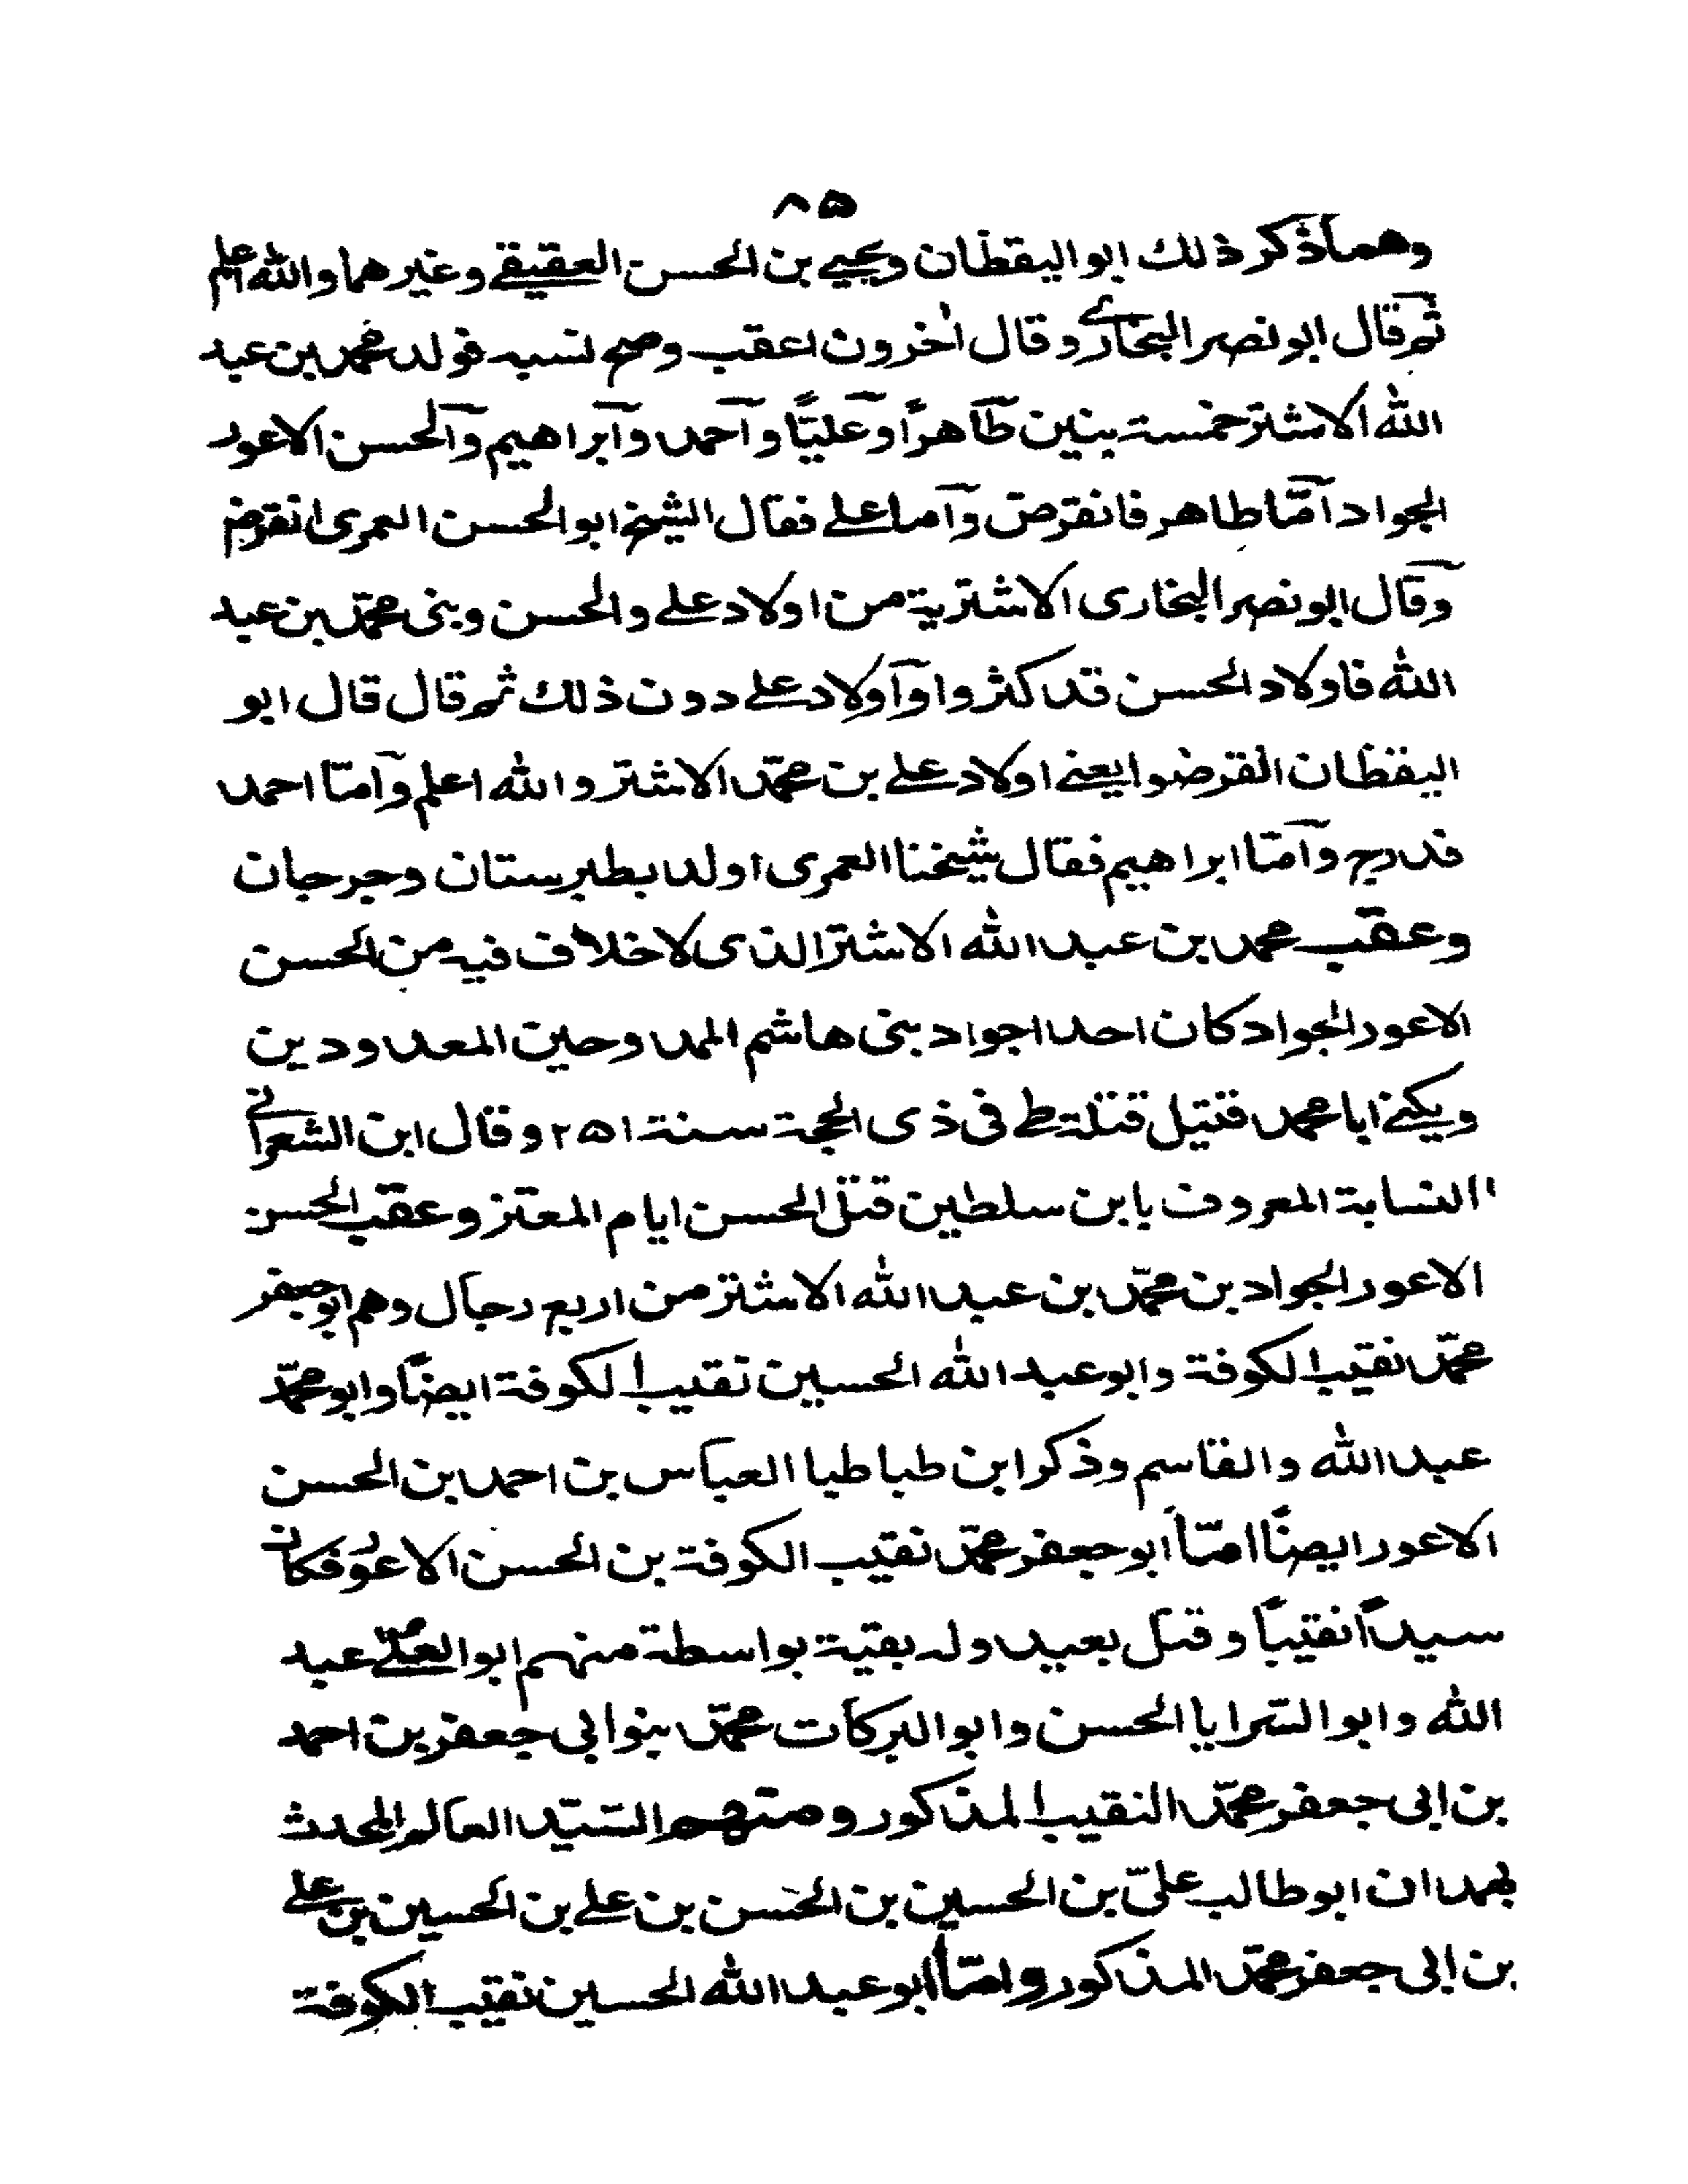 ٨٥
وهما ذكر ذلك ابو اليقظان ويحيى بن الحسن العقيقى وغيرهما والله اعلم
ثم قال ابو نصر البخارى وقال اخرون اعقب وصح نسبه فولد محمد بن عبد
الله الاشتر خمسة بنين طاهراً وعليّاً واحمد وابراهيم والحسن الاعور
الجواد امّا طاهر فانقرض واما على فقال الشيخ ابو الحسن العمرى انقرض
وقال ابو نصر البخارى الاشترية من اولاد على والحسن وبنى محمّد بن عبد
الله فاولاد الحسن قد كثروا واولاد على دون ذلك ثم قال قال ابو
اليقظان انقرضوا يعنى اولاد على بن محمّد الاشتر والله اعلم وامّا احمد
فدرج وامّا ابراهيم فقال شيخنا العمرى اولد بطبرستان وجرجان
وعقب محمد بن عبد الله الاشتر الذى لا خلاف فيه من الحسن
الاعور الجواد كان احد اجواد بنى هاشم الممدوحين المعدودين
ويكنى ابا محمد قتيل قتلة طى فى ذى الحجة سنة ٢٥١ وقال ابن الشعرانى
النسابة المعروف بابن سلطين قتل الحسن ايام المعتز وعقب الحسن
الاعور الجواد بن محمّد بن عبد الله الاشتر من اربع رجال وهم ابو جعفر
محمّد نقيب الكوفة وابو عبد الله الحسين نقيب الكوفة ايضاً وابو محمّد
عبد الله والقاسم وذكر ابن طباطبا العباس بن احمد بن الحسن
الاعور ايضاً امّا ابو جعفر محمّد نقيب الكوفة بن الحسن الاعور فكان
سيداً نقيباً وقتل بعيد وله بقية بواسطة منهم ابو العلى عبد
الله وابو السّرايا الحسن وابو البركات محمّد بنو ابى جعفر بن احمد
بن ابى جعفر محمّد النقيب المذكور ومنهم السّيّد العالم المحدث
بهمدان ابو طالب علىّ بن الحسين بن الحسن بن على بن الحسين بن على
بن ابى جعفر محمّد المذكور وامّا ابو عبد الله الحسين نقيب الكوفة